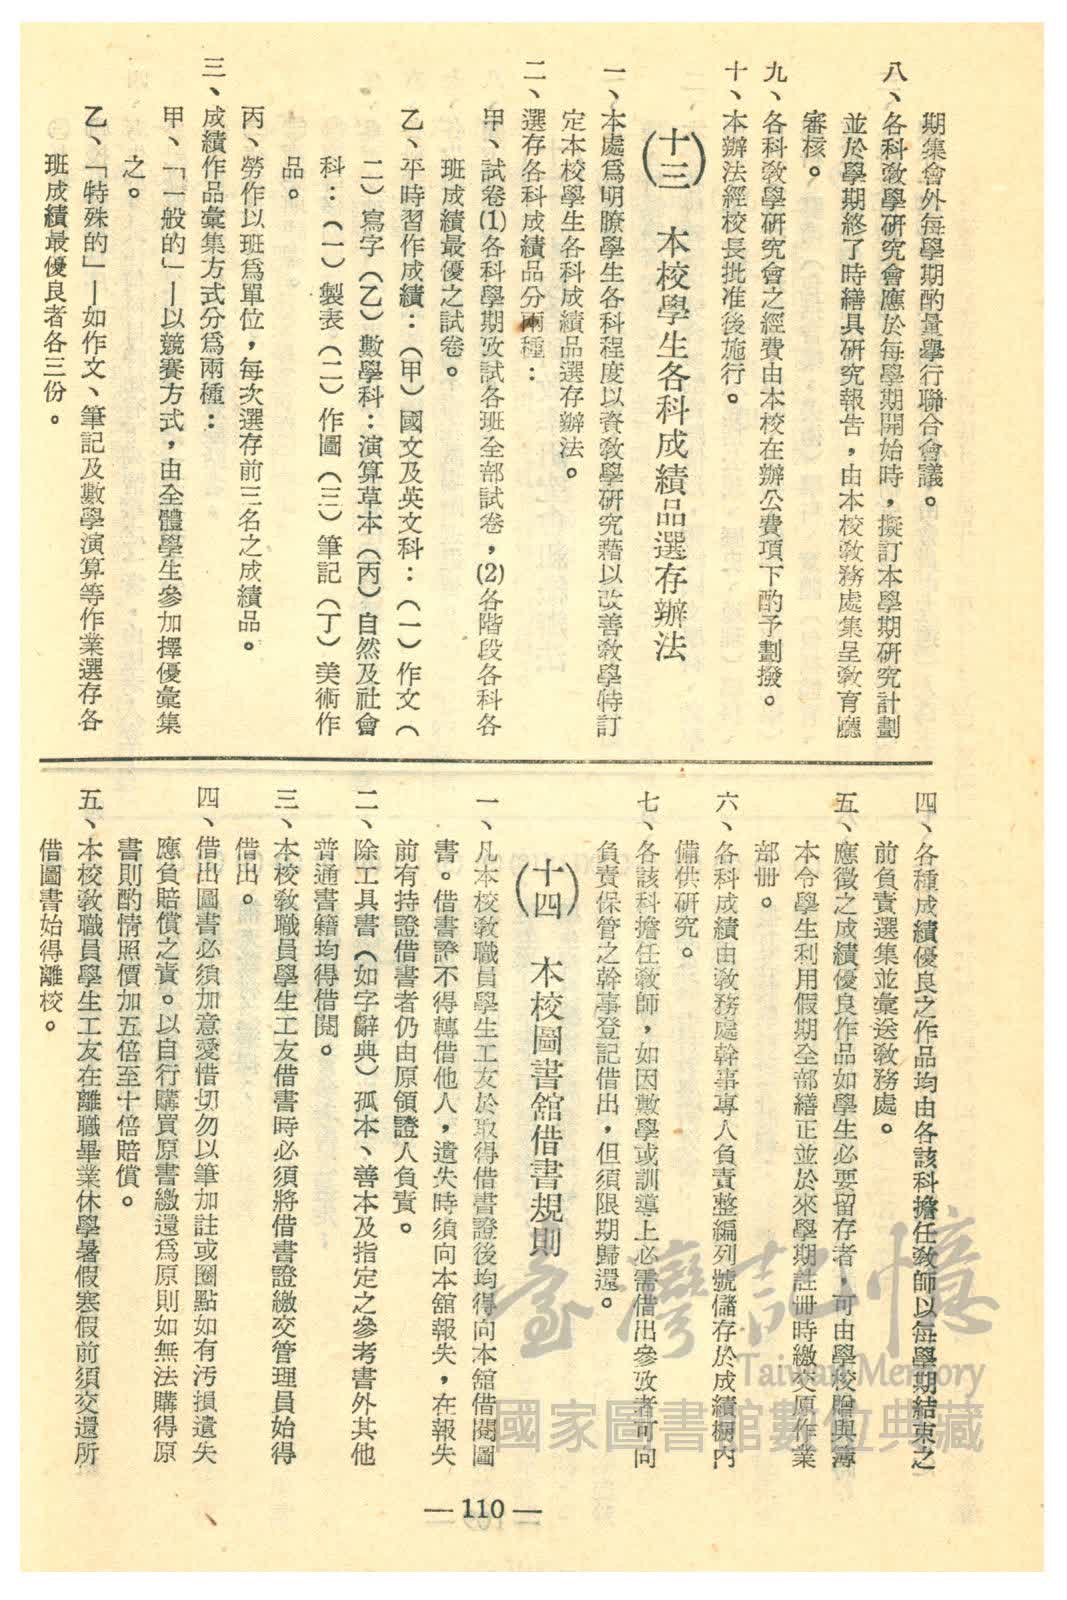 期集會外每學期酌量舉行聯合會議。
八、各科敎學硏究會應於每學期開始時，擬訂本學期硏究計劃
並於學期終了時繕具硏究報告，由本校敎務處集呈敎育廳
審核。
九、各科敎學硏究會之經費由本校在辦公費項下酌予劃撥。
十、本辦法經校長批准後施行。
(十三) 本校學生各科成績品選存辦法
一、本處爲明瞭學生各科程度以資敎學硏究藉以改善敎學特訂
定本校學生各科成績品選存辦法。
二、選存各科成績品分兩種：
甲、試卷(1)各科學期攷試各班全部試卷，(2)各階段各科各
班成績最優之試卷。
乙、平時習作成績：（甲）國文及英文科：（一）作文（
二）寫字（乙）數學科：演算草本（丙）自然及社會
科：（一）製表（二）作圖（三）筆記（丁）美術作
品。
丙、勞作以班爲單位，每次選存前三名之成績品。
三、成績作品彙集方式分爲兩種：
甲、「一般的」—以競賽方式，由全體學生參加擇優彙集
之。
乙、「特殊的」—如作文、筆記及數學演算等作業選存各
班成績最優良者各三份。
四、各種成績優良之作品均由各該科擔任敎師以每學期結束之
前負責選集並彙送敎務處。
五、應徵之成績優良作品如學生必要留存者，可由學校贈與簿
本令學生利用假期全部繕正並於來學期註冊時繳交原作業
部册。
六、各科成績由敎務處幹事專人負責整編列號儲存於成績櫥內
備供硏究。
七、各該科擔任敎師，如因敎學或訓導上必需借出參攷者可向
負責保管之幹事登記借出，但須限期歸還。
(十四) 本校圖書舘借書規則
一、凡本校敎職員學生工友於取得借書證後均得向本舘借閱圖
書。借書證不得轉借他人，遺失時須向本舘報失，在報失
前有持證借書者仍由原領證人負責。
二、除工具書（如字辭典）孤本、善本及指定之參考書外其他
普通書籍均得借閱。
三、本校敎職員學生工友借書時必須將借書證繳交管理員始得
借出。
四、借出圖書必須加意愛惜切勿以筆加註或圈點如有汚損遺失
應負賠償之責。以自行購買原書繳還爲原則如無法購得原
書則酌情照價加五倍至十倍賠償。
五、本校敎職員學生工友在離職畢業休學暑假寒假前須交還所
借圖書始得離校。
— 110 —
臺灣記憶
Taiwan Memory
國家圖書館數位典藏